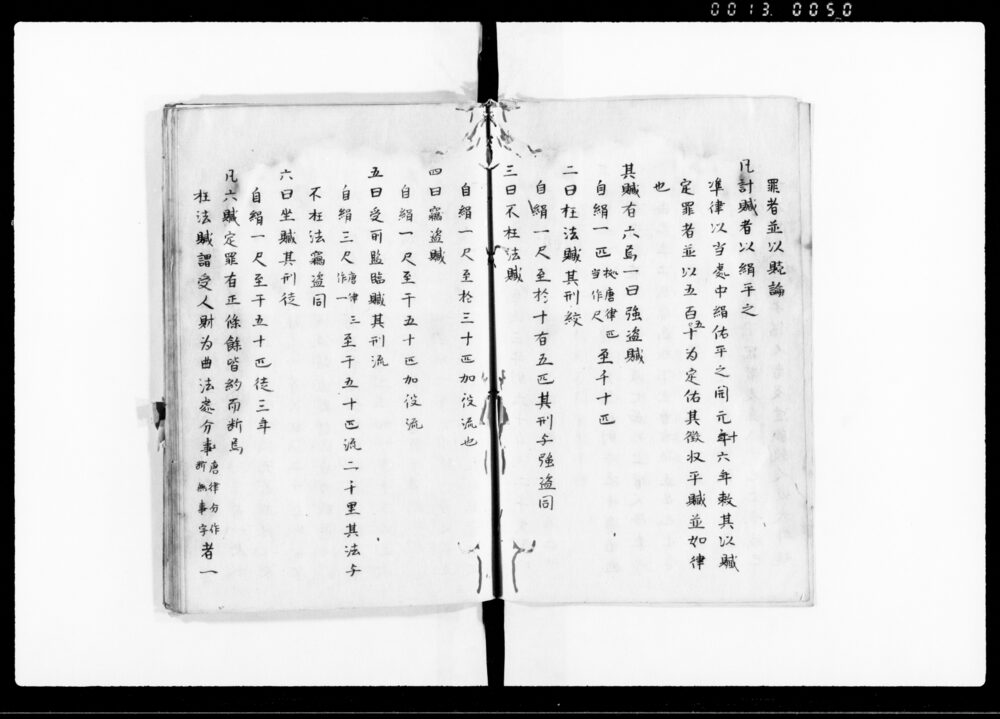 0013 0050
罪者並以贓論
凡計贓者以絹平之
準律以当處中絹估平之開元十六年敕其以贓
定罪者並以五百五十为定估其徵收平贓並如律
也
其贓有六焉一曰強盜贓
自絹一匹按唐律匹当作尺至千十匹
二曰枉法贓其刑絞
自絹一尺至於十有五匹其刑与強盜同
三曰不枉法贓
自絹一尺至於三十匹加役流也
四曰竊盜贓
自絹一尺至于五十匹加役流
五曰受所監臨贓其刑流
自絹三尺唐律三作一至于五十匹流二千里其法与
不枉法竊盜同
六曰坐贓其刑徒
自絹一尺至于五十匹徒三年
凡六贓定罪有正條餘皆約而断焉
枉法贓謂受人財为曲法處分事唐律分作断無事字者一